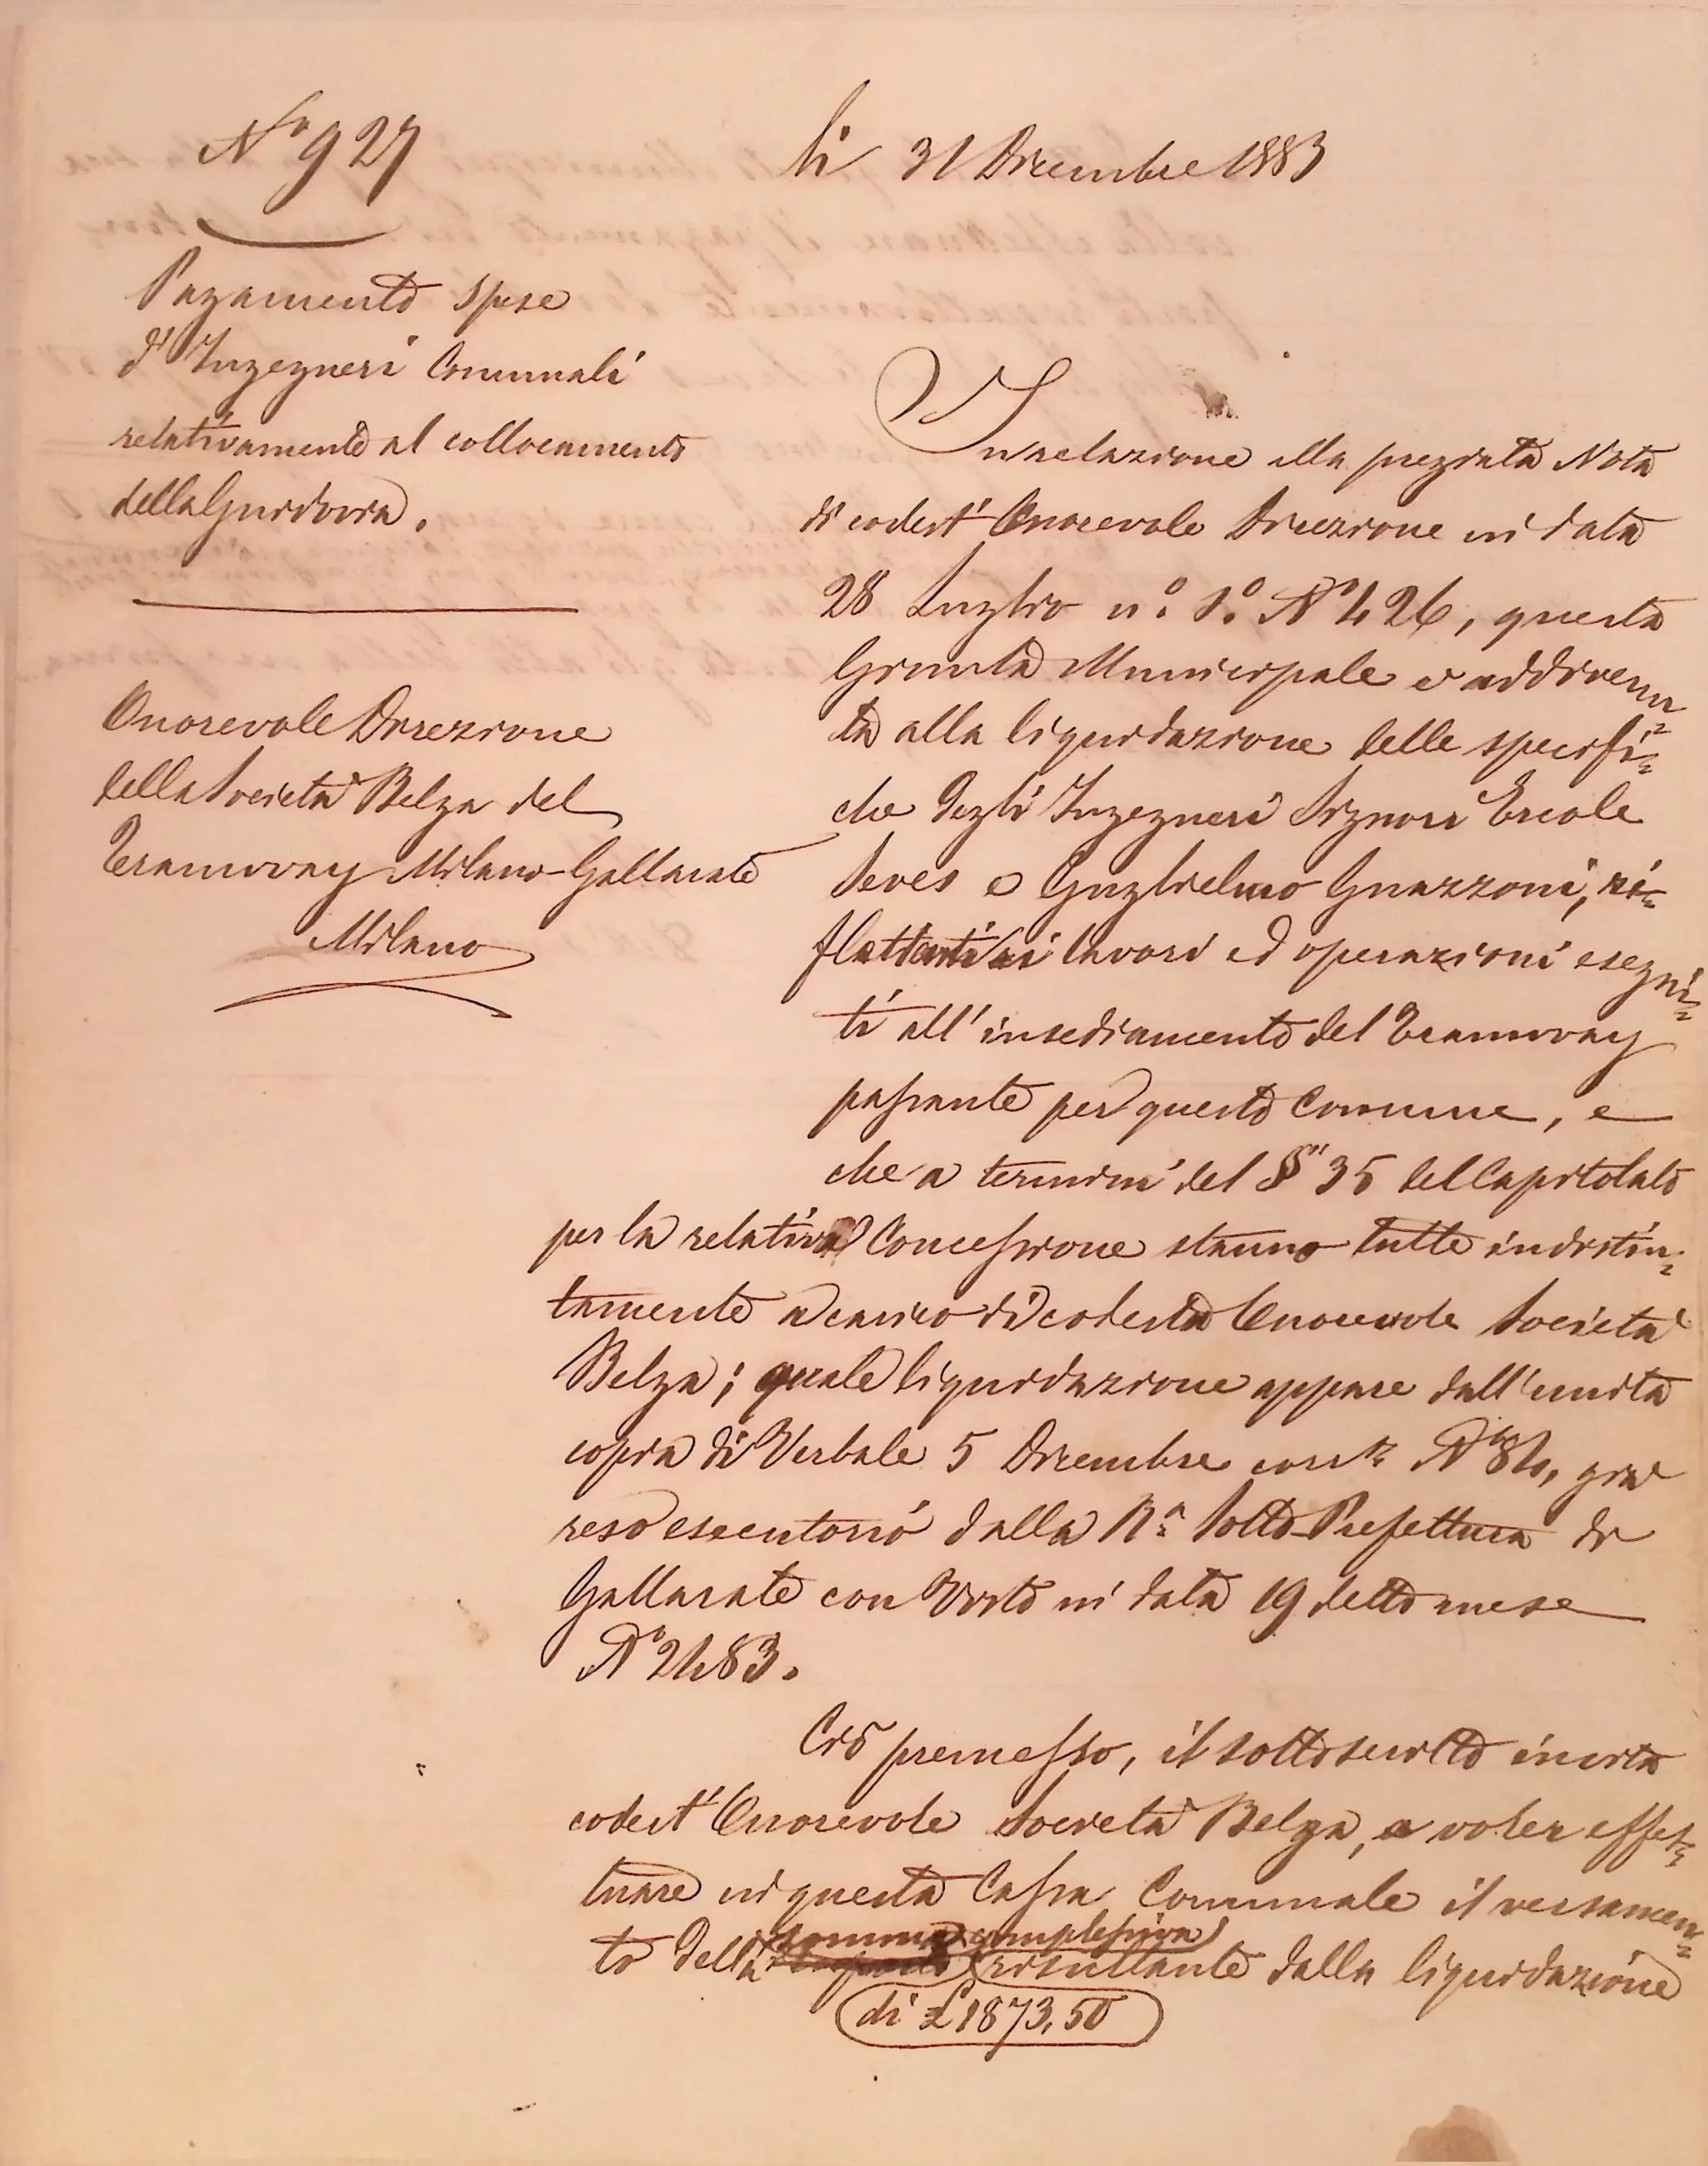 N° 927
li 31 Dicembre 1883
Pagamento Spese
d'Ingegneri Comunali
relativamente al collocamento
della Guidovia.
Onorevole Direzione
della Società Belga del
Tramway Milano-Gallarate
Milano
In relazione alla pregiata Nota
di codest' Onorevole Direzione in data
28 Luglio N° 426, questa
Giunta Municipale è addivenu=
ta alla liquidazione delle specifi=
che degli Ingegneri Signori Ercole
Seves e Guglielmo Guazzoni, ri=
flettenti ai lavori ed operazioni esegui=
ti all'insediamento del Tramway
passante per questo Comune, e
che a termini del § 35 del Capitolato
per la relativa Concessione stanno tutte indistin=
tamente a carico di codesta Onorevole Società
Belga; quale liquidazione appare dall'unita
copia di Verbale 5 Dicembre corr.te N° 84, già
reso esecutorio dalla R.a Sotto-Prefettura di
Gallarate con Visto in data 19 detto mese
N° 2483.
Ciò premesso, il sottoscritto invita
codest' Onorevole Società Belga, a voler effet=
tuare in questa Cassa Comunale il versamen=
somma complessiva
to della risultante dalla liquidazione
di £ 1873,50